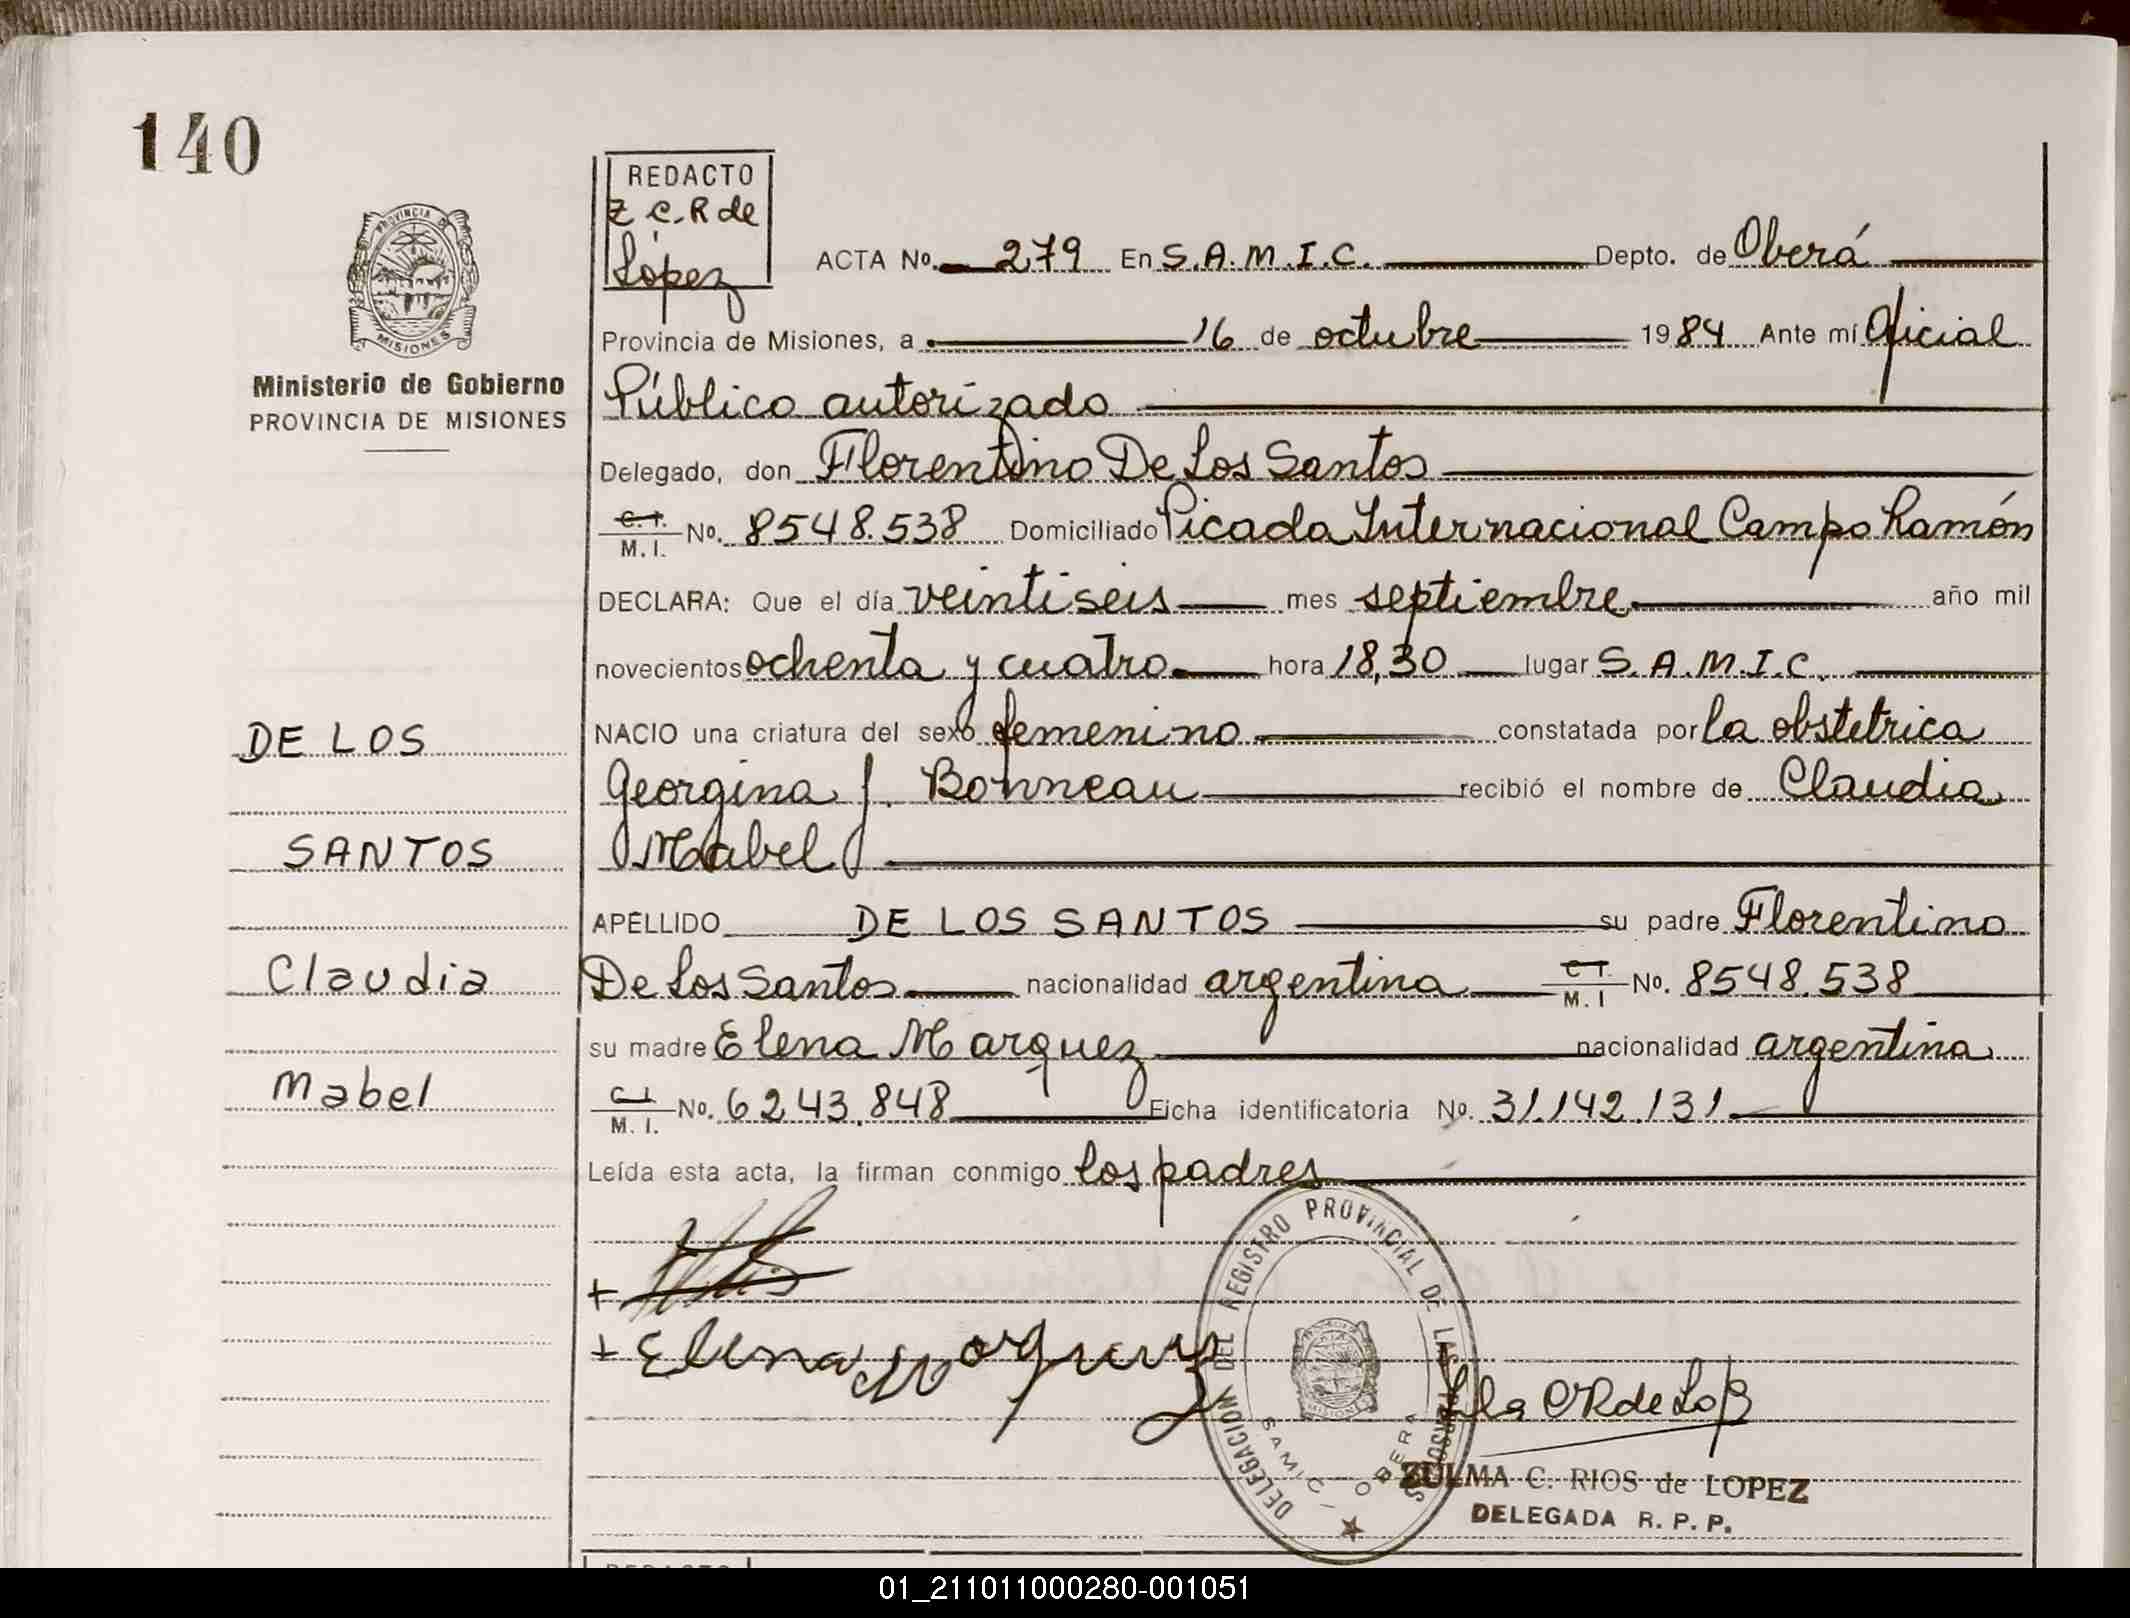 140
REDACTO
Z C. R de
López
PROVINCIA DE
MISIONES
Ministerio de Gobierno
PROVINCIA DE MISIONES
ACTA No. 279 En S.A.M.I.C. Depto. de Oberá
Provincia de Misiones, a 16 de octubre 1984 Ante mí Oficial
Público autorizado
Delegado, don Florentino De Los Santos
C. I. M. I. No. 8548.538 Domiciliado Picada Internacional Campo Ramón
DECLARA: Que el día veintiseis mes septiembre año mil
novecientos ochenta y cuatro hora 18,30 lugar S.A.M.I.C.
NACIO una criatura del sexo femenino constatada por la obstetrica
Georgina J. Bonneau recibió el nombre de Claudia
Mabel
APELLIDO DE LOS SANTOS su padre Florentino
De Los Santos nacionalidad argentina C I. M. I No. 8548.538
su madre Elena Marquez nacionalidad argentina
C. I. M. I. No. 6243.848 Ficha identificatoria No. 31.142.131
Leída esta acta, la firman conmigo los padres
DE LOS
SANTOS
Claudia
Mabel
+
+ Elena Marquez
DELEGACION DEL REGISTRO PROVINCIAL DE LAS PERSONAS
SAMIC - OBERA
ZULMA C. RIOS de LOPEZ
DELEGADA R. P. P.
REDACTO
01_211011000280-001051